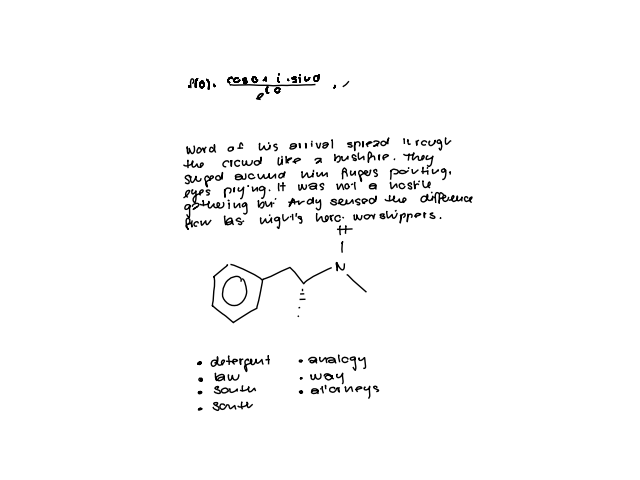 f(θ) = (cos θ + i · sin θ) / e^{iθ}
Word of his arrival spread through
the crowd like a bushfire. They
surged around him fingers pointing,
eyes prying. It was not a hostile
gathering but Andy sensed the difference
from last night's hero-worshippers.
H
N
• detergent • analogy
• law • way
• south • attorneys
• south